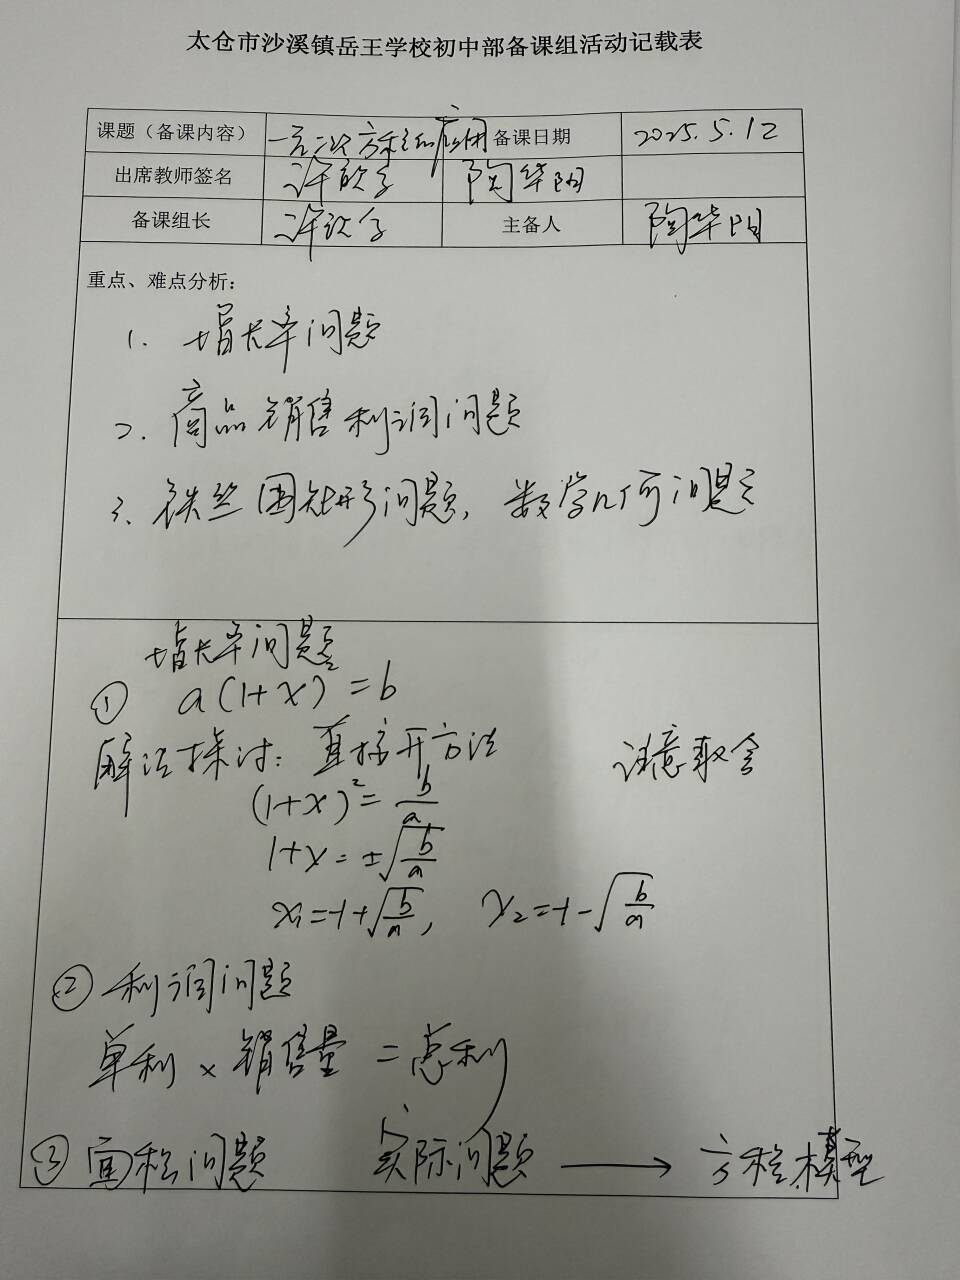 太仓市沙溪镇岳王学校初中部备课组活动记载表
课题（备课内容） 一元二次方程的应用 备课日期 2025.5.12
出席教师签名 陶华阳
备课组长 主备人 陶华阳
重点、难点分析：
1. 增长率问题
2. 商品销售利润问题
3. 铁丝围矩形问题，数学几何问题
增长率问题
① a(1+x)=b
解法探讨：直接开方法 注意取舍
(1+x)²=b/a
1+x=±√(b/a)
x₁=-1+√(b/a)， x₂=-1-√(b/a)
② 利润问题
单利×销售量=总利
③ 面积问题 实际问题 → 方程模型